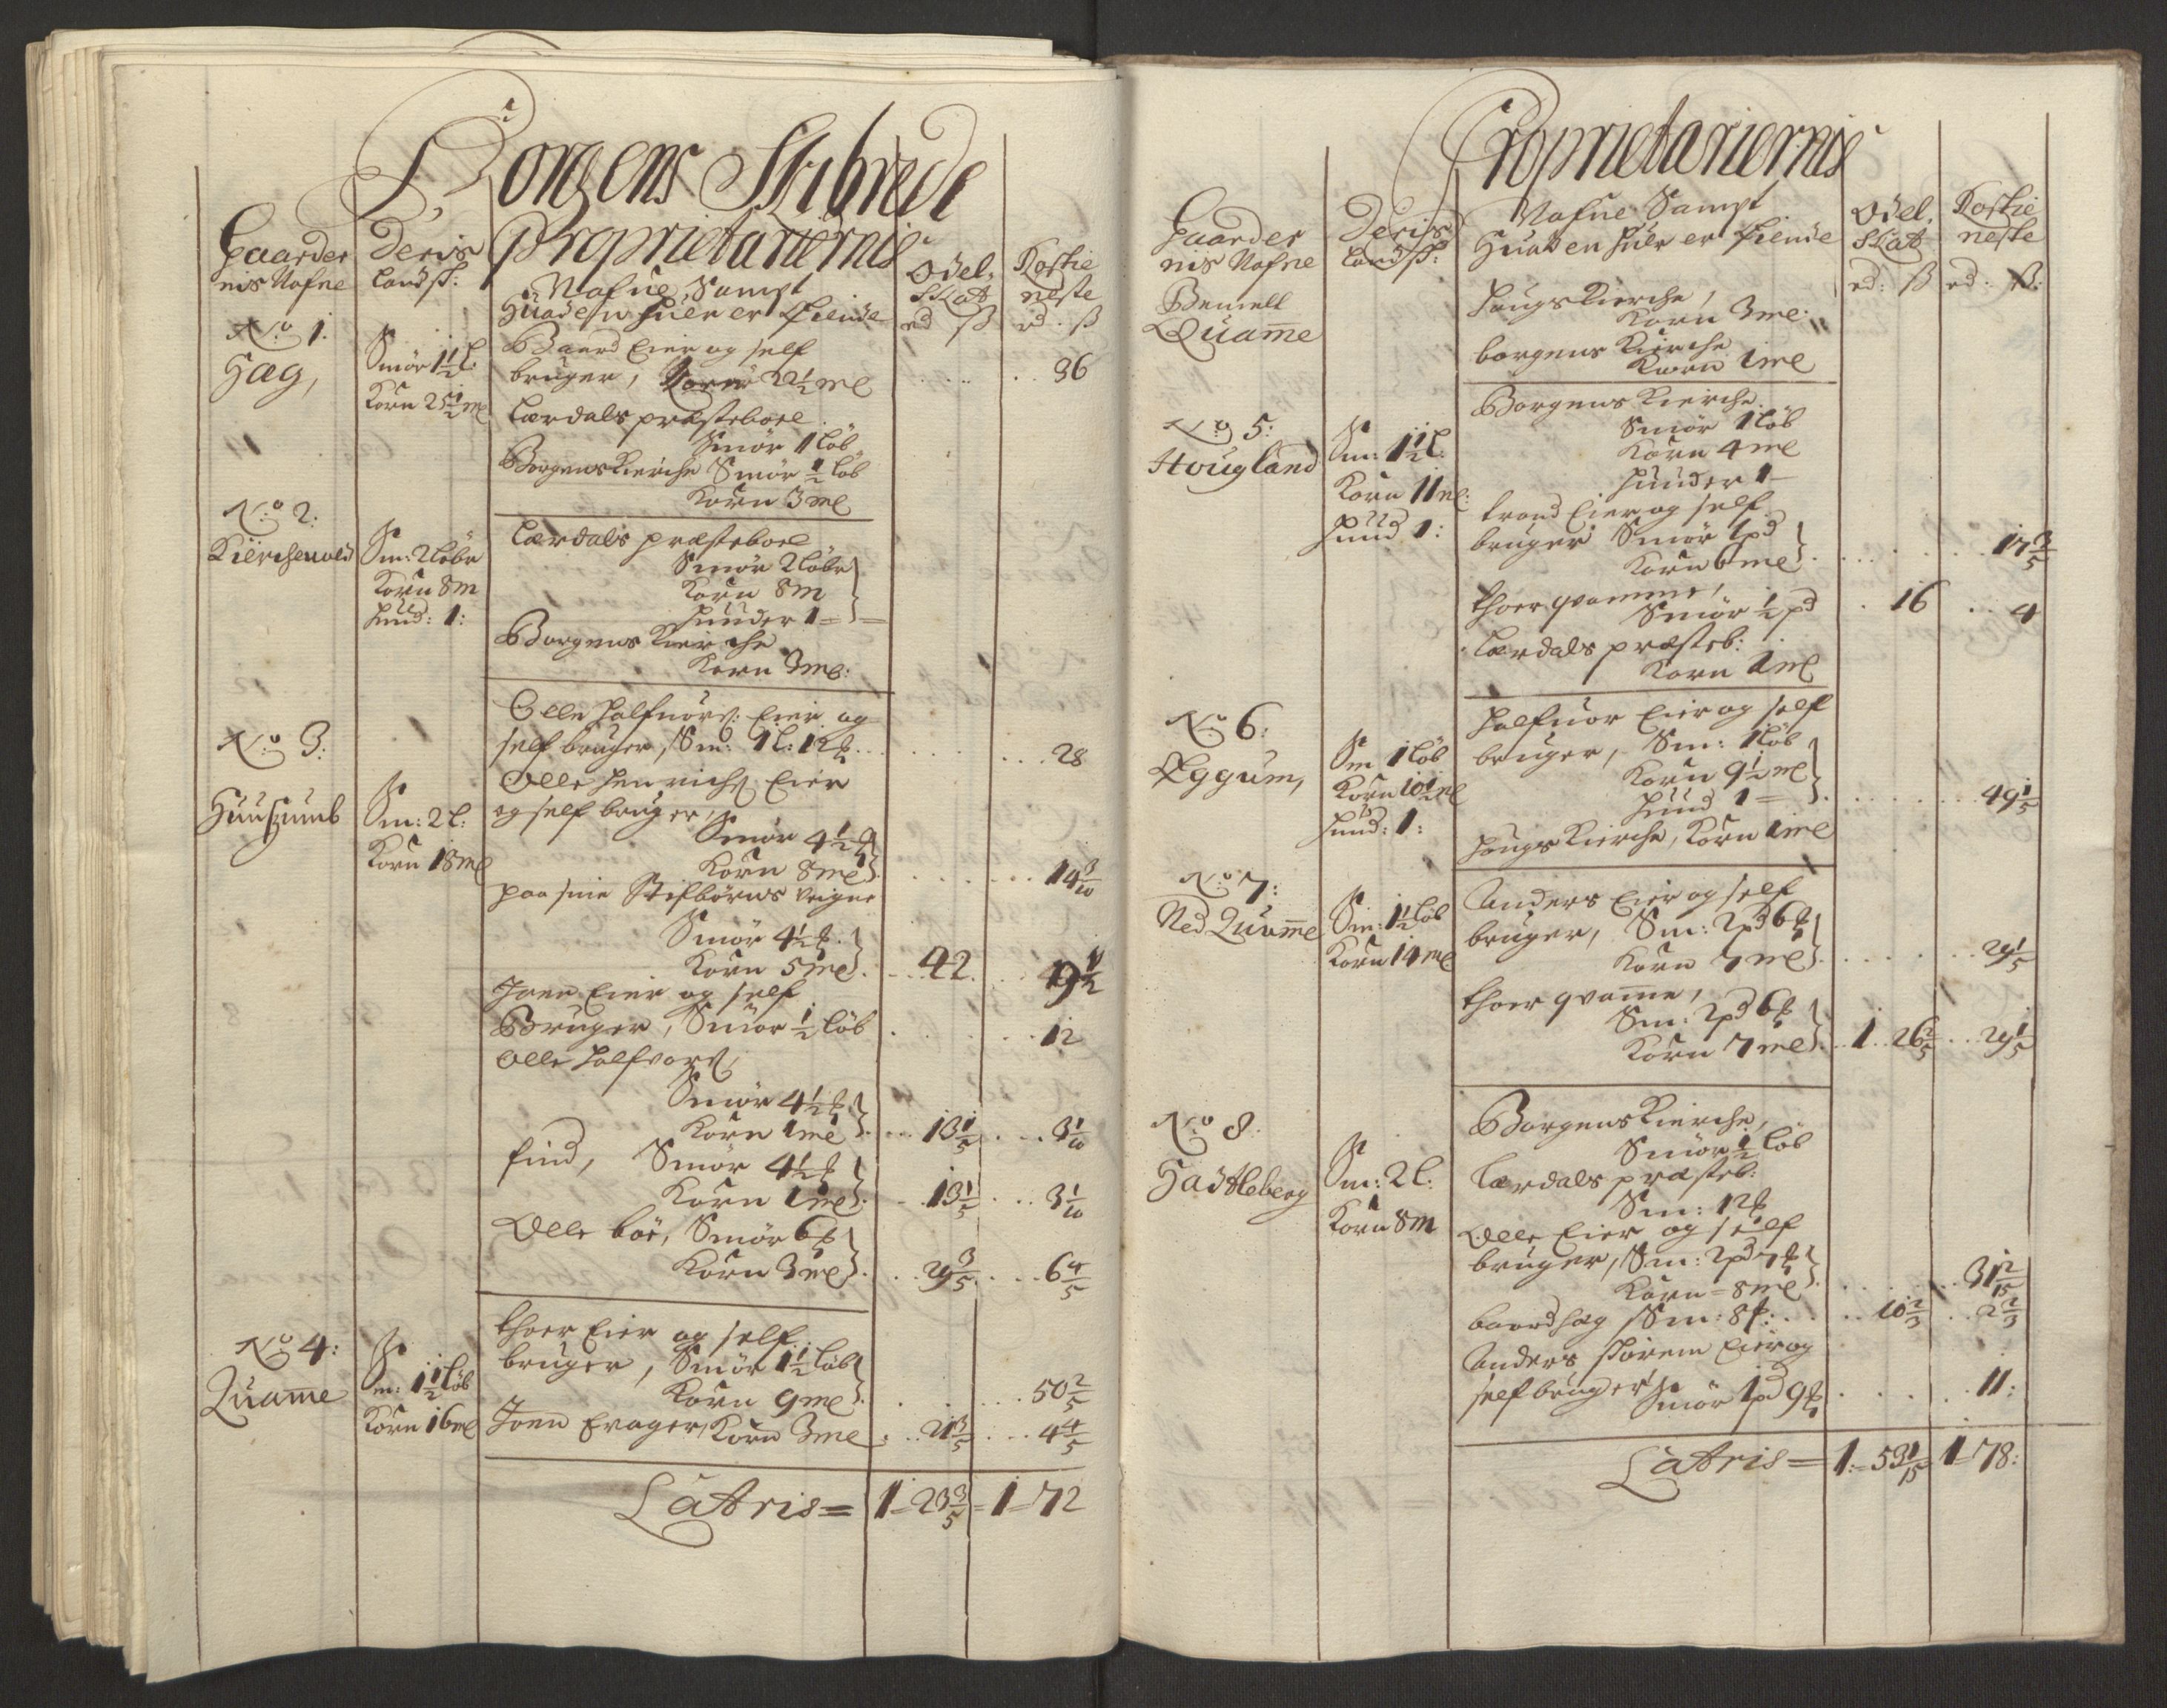 Borgens Skibrede
Gaarder
nis Nafne
Deris
Landsk:
Proprietariernis
Nafne Sampt
Huadesn huer er Eiende
Odel.
Skat
rd ß
Rostie
neste
rd. ß
No 1.
Hæg,
Smör 1½ l:
Korn 25½ mel
Baard Eier og self
bruger, Korn 22½ mel
36
Lærdals præsteboel
Smör 1 löb
Borgens Kierche Smör ½ löb
Korn 3 mel
No 2:
Kierchevold
Sm: 2 löbe
Korn 8 m
Hud: 1:
Lærdals præsteboel
Smör 2 löbe
Korn 8 m
huder 1=
Borgens Kierche
Korn 3 mel:
No 3:
Huuszumb
Sm: 2 l:
Korn 18 mel
Olle Halfuors: Eier og
self bruger, Sm: 1 l: 12 ℔
28
Olle Henrichs Eier
og self bruger,
Smör 4½ ℔
Korn 8 mel
14 3/10
paa sine Stifbörns Veigne
Smör 4½ ℔
Korn 5 mel
42. 9½
Joen Eier og self
Bruger, Smör ½ löb
12
Olle Halfvors,
Smör 4½ ℔
Korn 1 mel
13 1/5 3 1/10
find, Smör 4½ ℔
Korn 1 mel
13 1/5 3 1/10
Olle böe, Smör 6 ℔
Korn 3 mel
29 3/5 6 4/5
No 4:
Quame
Sm: 1½ löb
Korn 16 mel
Thoer Eier og self
bruger, Smör 1½ löb
Korn 9 mel
50 2/5
Joen Erager, Korn 3 mel
21 3/5 4 4/5
Latris = 1 - 23 3/5 = 1 - 72
Proprietariernis
Gaarder
nis Nafne
Deris
Landsk:
Nafne Sampt
Huadt en huer er Eiende
Odel.
Skat
rd: ß
Rostie
neste
rd: ß:
Bemelt
Quame
Hougs Kierche,
Korn 3 mel:
borgens Kierche
Korn 1 mel
No 5:
Hougland
Sm: 1½ l:
Korn 11 m:
Hud 1:
Borgens Kierche.
Smör 1 löb
Korn 4 mel
Huder 1
trond Eier og self
bruger Smör 1 pd
Korn 6 mel
17 3/5
Thoer qvamme,
Smör ½ pd
16 4
Lærdals præsteb:
Korn 1 mel
No 6:
Eggum,
Sm 1 löb
Korn 10½ mel
Hud: 1:
Halfuor Eier og self
bruger, Sm: 1 löb
Korn 9½ mel
Hud 1 =
49 1/5
Hougs Kierche, Korn 1 mel
No 7:
Ned Quame
Sm: 1½ löb
Korn 14 mel
Anders Eier og self
bruger, Sm: 2 pd 6 ℔
Korn 7 mel
29 1/5
Thoer qvame,
Sm: 2 pd 6 ℔
Korn 7 mel
1 26 2/5 29 1/5
No 8.
Hadtleberg
Sm: 2 l:
Korn 8 m
Borgens Kierche,
Smör ½ löb
Lærdals præsteb:
Sm: 12 ℔
Olle Eier og self
bruger, Sm: 2 pd 7 ℔
Korn = 8 mel
31 2/15
baard hæg Sm: 8 ℔:
10 2/3 2 2/3
Anders Eier og
self bruger Smör 1 pd 9 ℔
11:
Latris = 1:- 53 1/15 1 - 78: